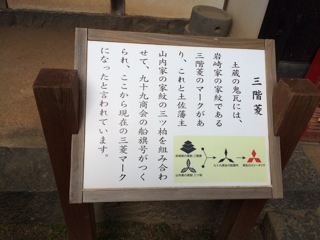 三階菱
土蔵の鬼瓦には、
岩崎家の家紋である
三階菱のマークがあ
り、これと土佐藩主
山内家の家紋の三ツ柏を組み合わ
せて、九十九商会の船旗号がつく
られ、ここから現在の三菱マーク
になったと言われています。